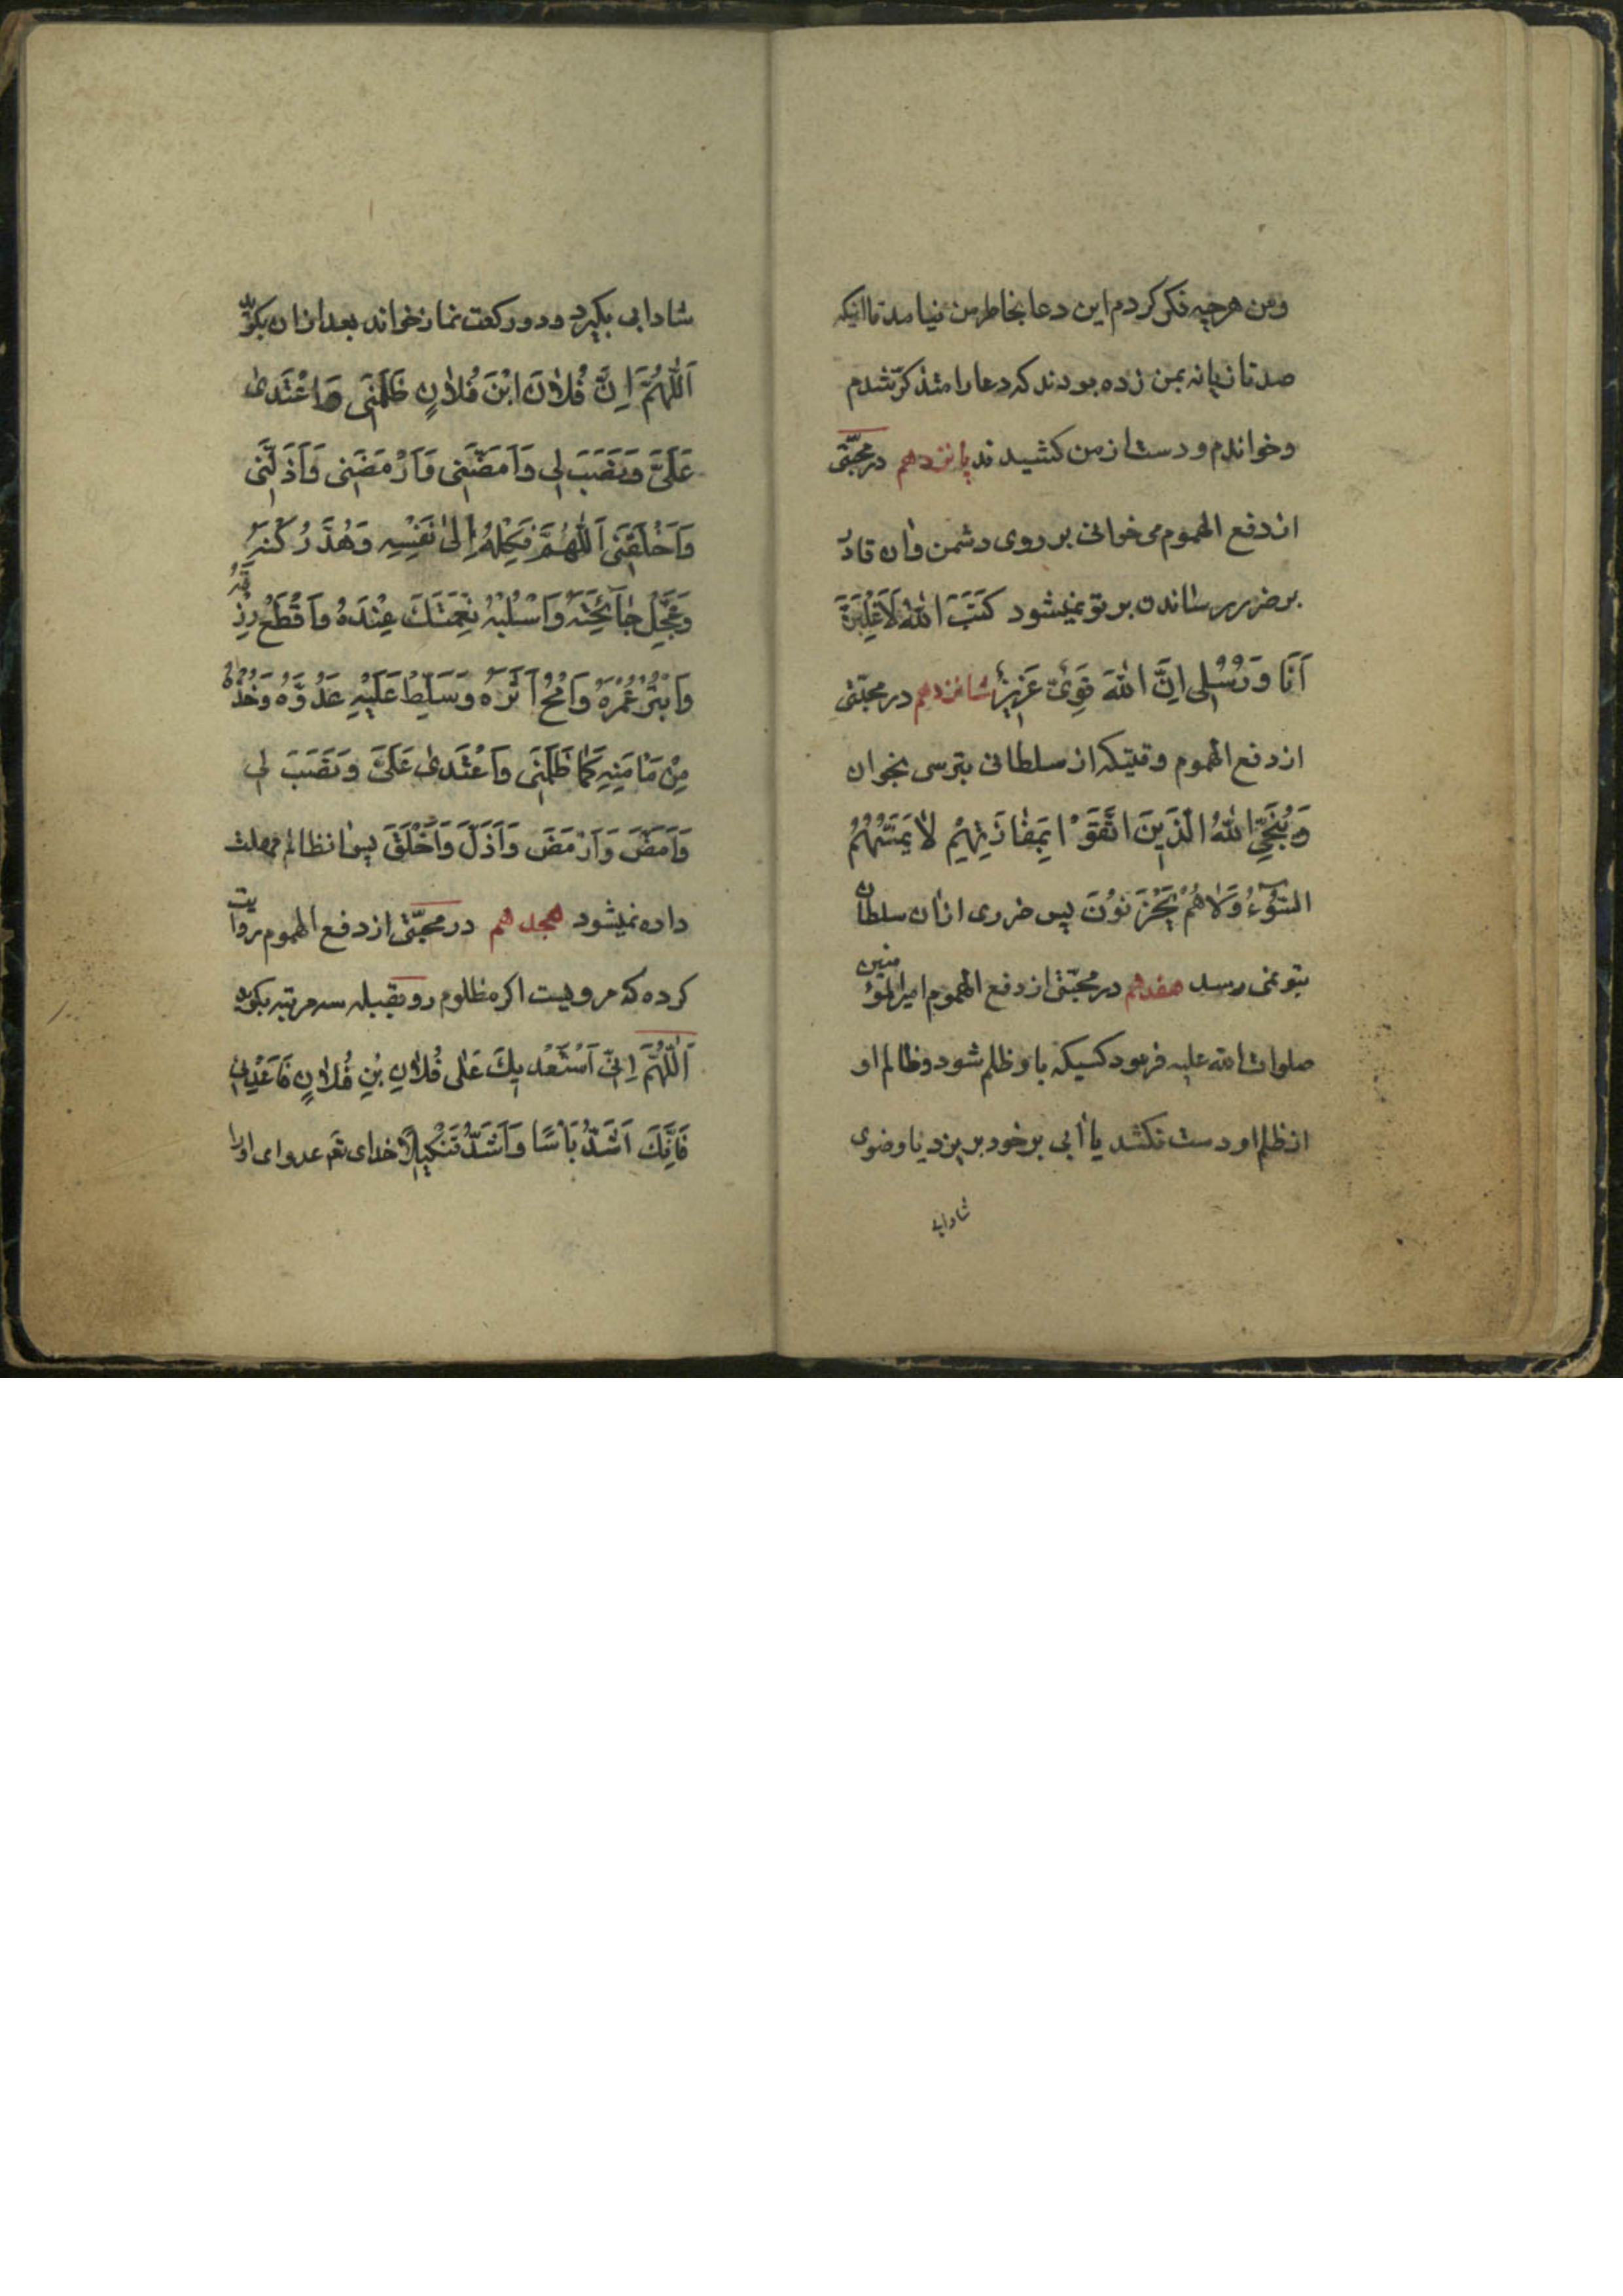 ومن هرچه فکر کردم این دعا بخاطر من نیامد تا اینکه
صد تازیانه بمن زده بودند که دعا را متذکر شدم
وخواندم ودست از من کشیدند پانزدهم در مجتنی
از دفع الهموم می خوانی بر روی دشمن وآن قادر
بر ضرر رساندن بر تو نمیشود كَتَبَ اللهُ لَاَغْلِبَنَّ
اَنَا وَرُسُلِی اِنَّ اللهَ قَوِیٌّ عَزِیزٌ شانزدهم در مجتنی
از دفع الهموم وقتیکه از سلطانی بترسی بخوان
وَیُنَجِّی اللهُ الَّذِینَ اتَّقَوْا بِمَفٰازَتِهِمْ لاٰ یَمَسُّهُمُ
السُّوۤءُ وَلاٰ هُمْ یَحْزَنُوْنَ پس ضرری از آن سلطان
بتو نمی رسد هفدهم در مجتنی از دفع الهموم امیرالمؤمنین
صلوات الله علیه فرمود کسیکه باو ظلم شود وظالم او
از ظلم او دست نکشد یا آبی بر خود بریزد یا وضوی
شادابی
شادابی بگیرد ودو رکعت نماز خواند بعد از آن بگوید
اَللّٰهُمَّ اِنَّ فُلاٰنَ ابْنَ فُلاٰنٍ ظَلَمَنِی وَاعْتَدیٰ
عَلَیَّ وَنَصَبَ لِی وَاَمَضَّنِی وَاَرْمَضَنِی وَاَذَلَّنِی
وَاَخْلَقَنِی اَللّٰهُمَّ فَکِلْهُ اِلیٰ نَفْسِهِ وَهُدَّ رُکْنَهُ
وَعَجِّلْ جٰآئِحَتَهُ وَاسْلُبْهُ نِعْمَتَكَ عِنْدَهُ وَاقْطَعْ رِزْقَهُ
وَابْتُرْ عُمْرَهُ وَامْحُ اَثَرَهُ وَسَلِّطْ عَلَیْهِ عَدُوَّهُ وَخُذْهُ
مِنْ مَاْمَنِهِ کَمٰا ظَلَمَنِی وَاعْتَدیٰ عَلَیَّ وَنَصَبَ لِی
وَاَمَضَّ وَاَرْمَضَ وَاَذَلَّ وَاَخْلَقَ پس انظالم مهلت
داده نمیشود هجدهم در مجتنی از دفع الهموم روایت
کرده که مرویست اکر مظلوم رو بقبله سه مرتبه بکوید
اَللّٰهُمَّ اِنِّی اَسْتَعْدِیكَ عَلٰی فُلاٰنِ بْنِ فُلاٰنٍ فَاَعْدِنِی
فَاِنَّكَ اَشَدُّ بَأْسًا وَاَشَدُّ تَنْکِیلاً خدای تعم عدوای او را